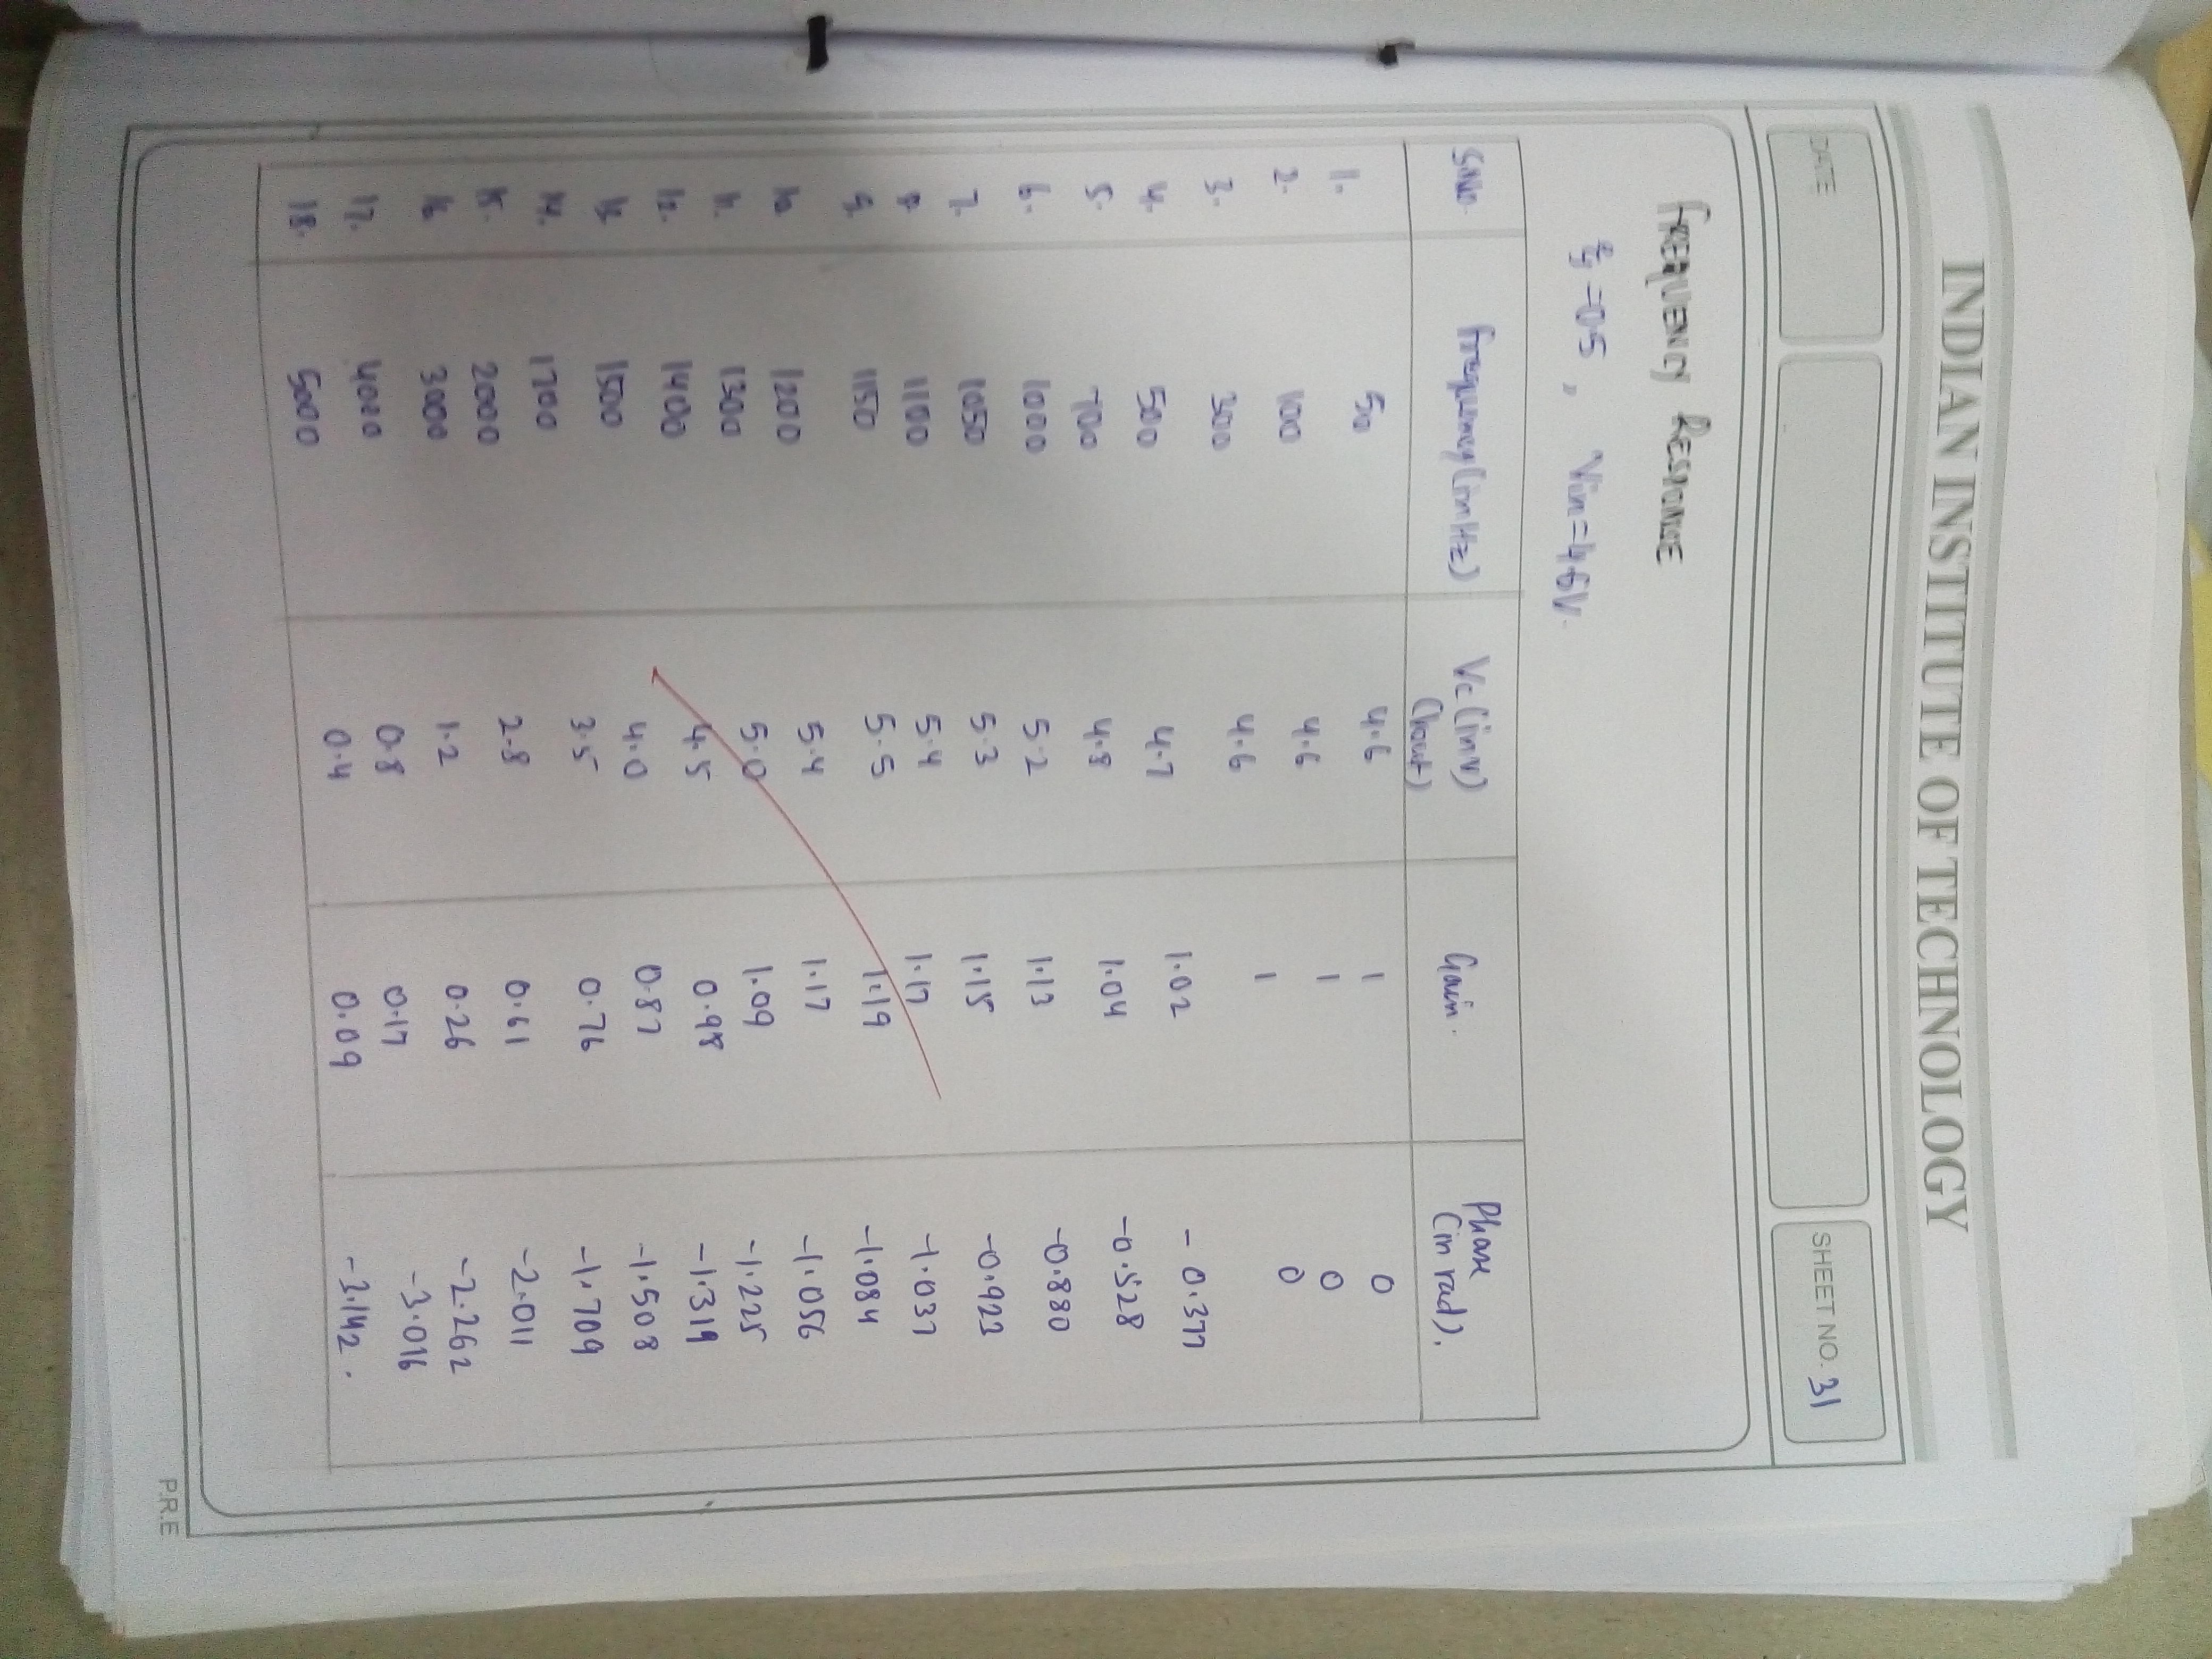 INDIAN INSTITUTE OF TECHNOLOGY
DATE
SHEET NO. 31
FREQUENCY RESPONSE
ξ =0.5 , Vin=4.6V.
S.No. Frequency (in Hz) Vc (in V) (Vout) Gain. Phase (in rad).
1. 50 4.6 1 0
2. 100 4.6 1 0
3. 300 4.6 1 0
4. 500 4.7 1.02 -0.377
5. 700 4.8 1.04 -0.528
6. 1000 5.2 1.13 -0.880
7. 1050 5.3 1.15 -0.923
8. 1100 5.4 1.17 -1.037
9. 1150 5.5 1.19 -1.084
10. 1200 5.4 1.17 -1.056
11. 1300 5.0 1.09 -1.225
12. 1400 4.5 0.98 -1.319
13. 1500 4.0 0.87 -1.508
14. 1700 3.5 0.76 -1.709
15. 2000 2.8 0.61 -2.011
16. 3000 1.2 0.26 -2.262
17. 4000 0.8 0.17 -3.016
18. 5000 0.4 0.09 -3.142.
P.R.E